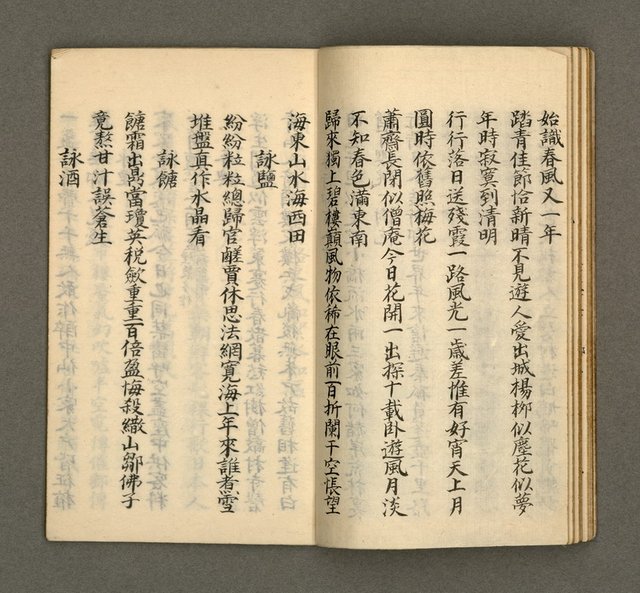 始識春風又一年
踏青佳節恰新晴不見遊人愛出城楊栁似塵花似夢
年時寂寞到清明
行行落日送殘霞一路風光一歲差惟有好宵天上月
圓時依舊照梅花
蕭齋長閉似僧庵今日花開一出探十載卧遊風月淡
不知春色滿東南
歸來獨上碧樓顛風物依稀在眼前百折闌干空悵望
海東山水海西田
詠鹽
紛紛粒粒總歸官鹺賈休思法網寬海上年來誰煮雪
堆盤真作水晶看
詠餹
餹霜出鼎當瓊英稅斂重重百倍盈悔殺繖山鄒佛子
竟熬甘汁誤蒼生
詠酒